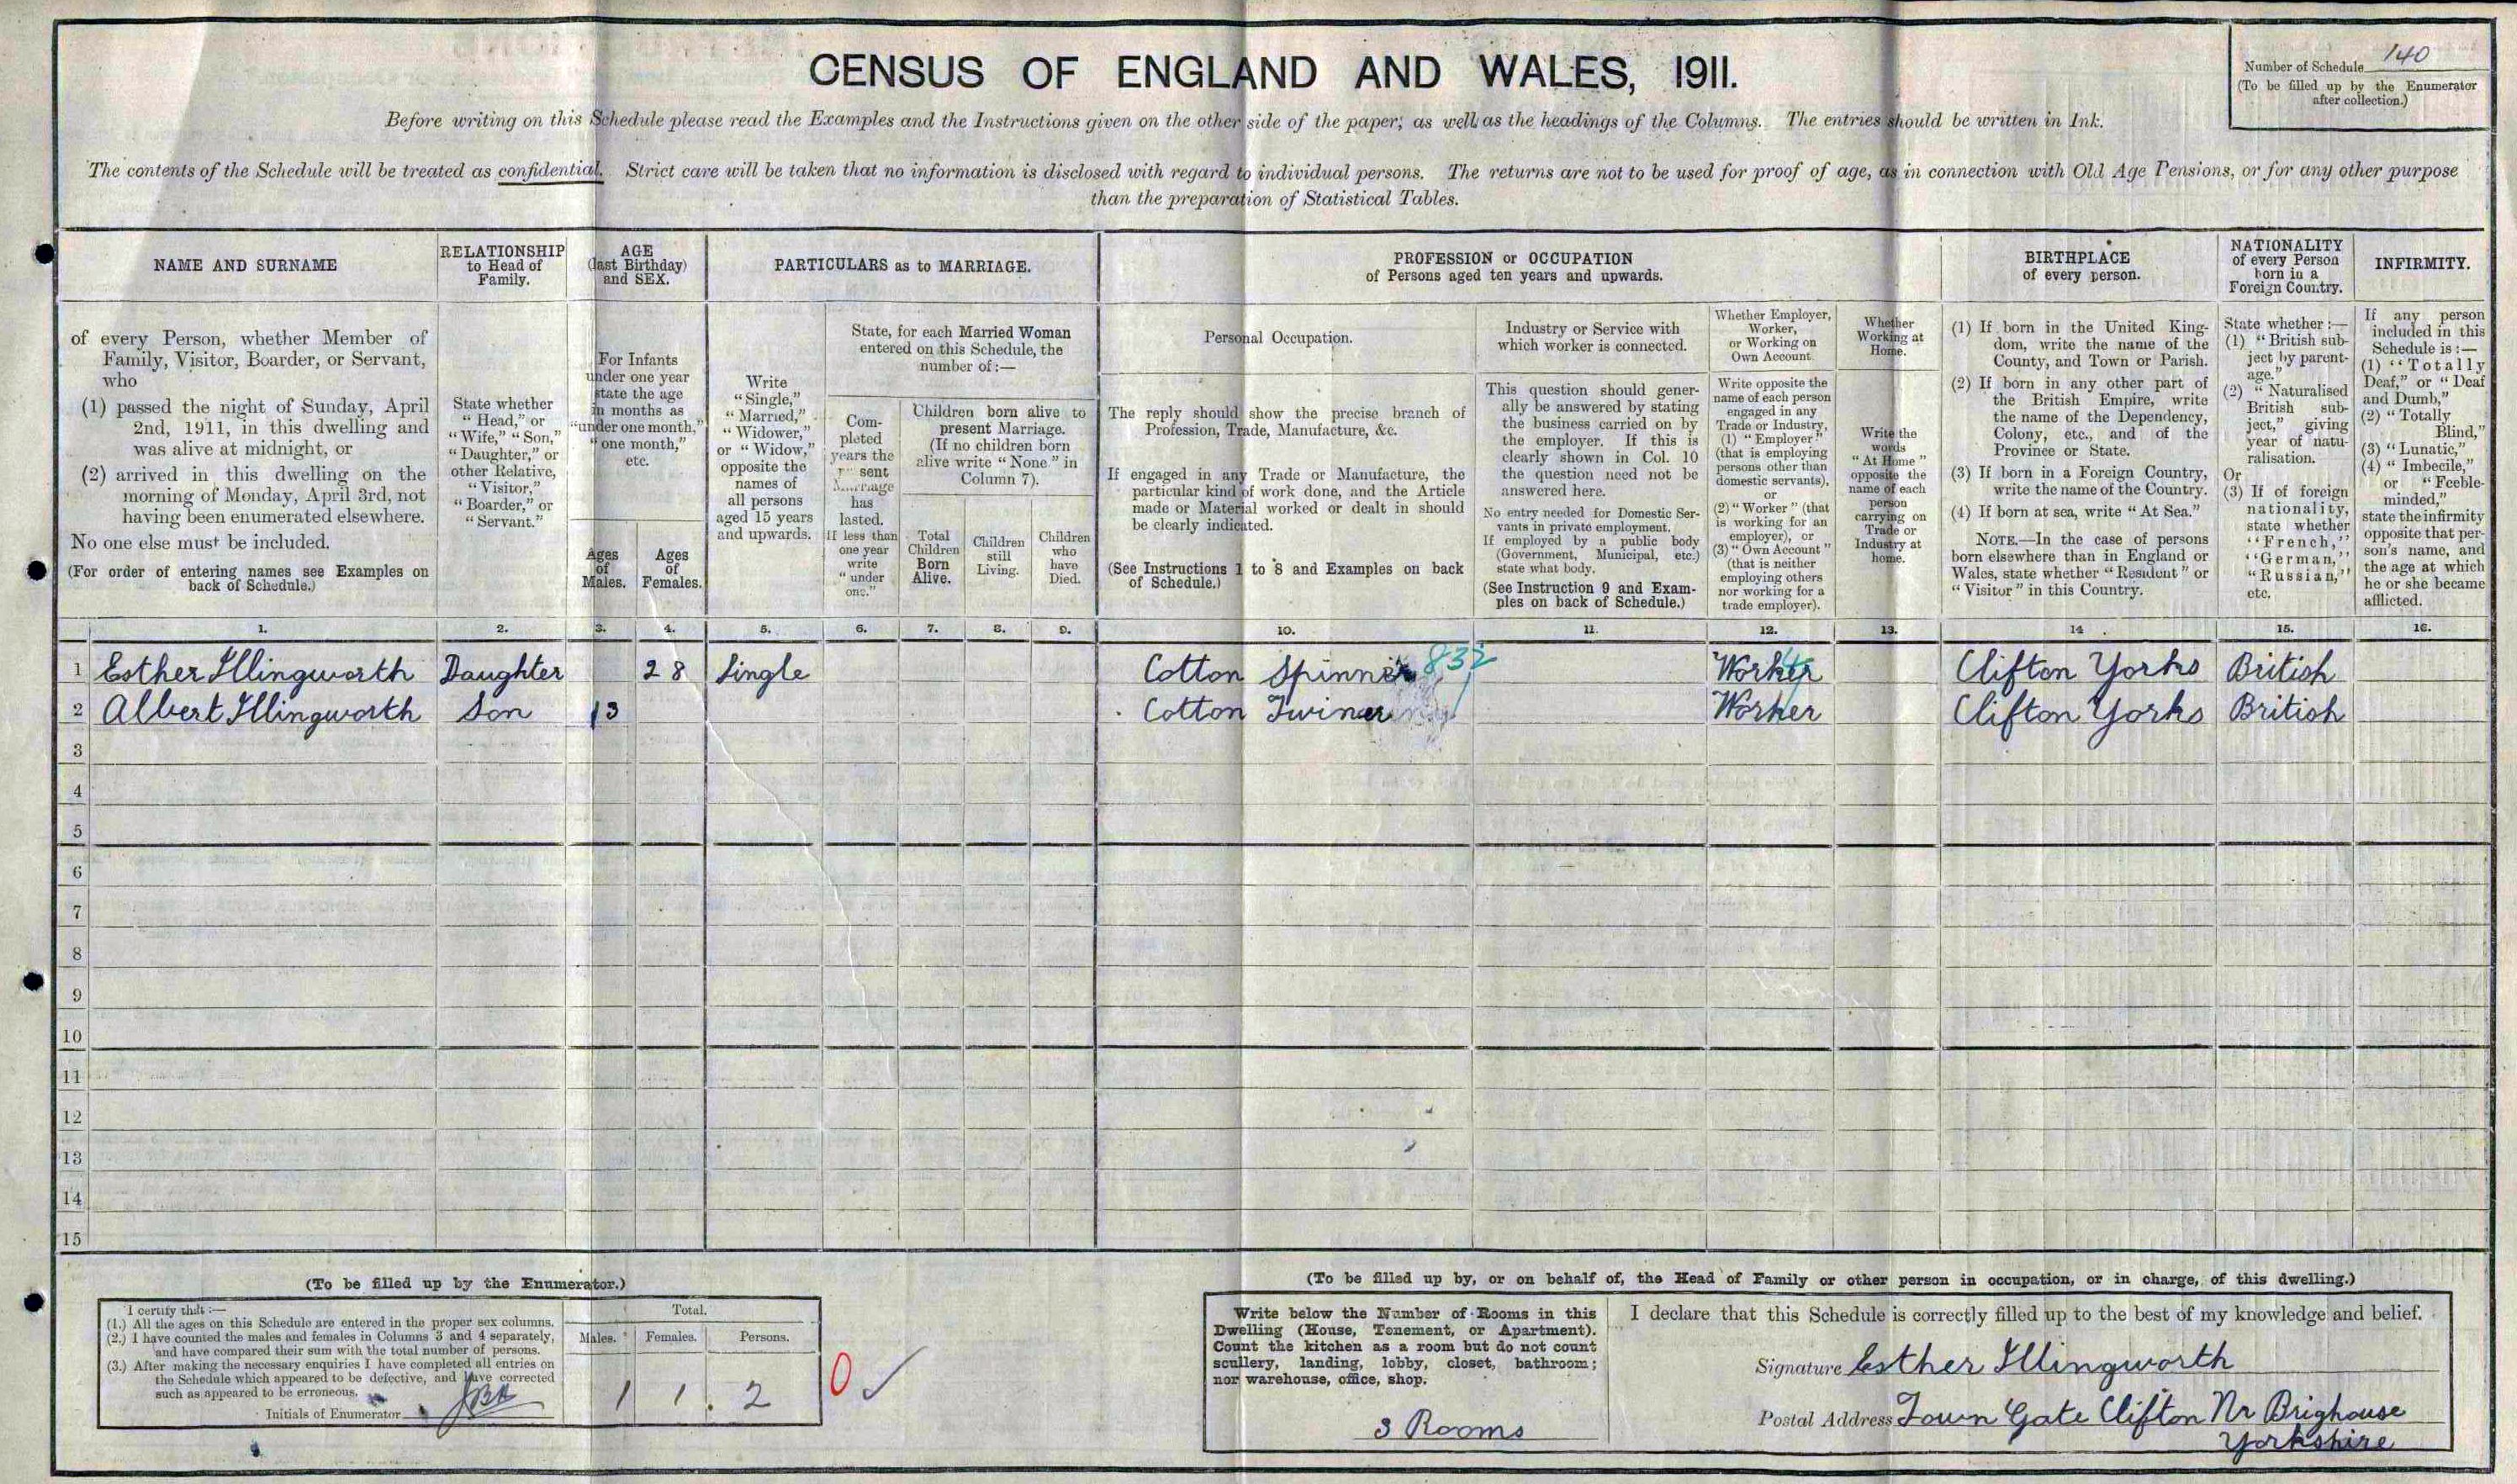 CENSUS OF ENGLAND AND WALES, 1911.
Number of Schedule 140
(To be filled up by the Enumerator
after collection.)
Before writing on this Schedule please read the Examples and the Instructions given on the other side of the paper; as well as the headings of the Columns. The entries should be written in Ink.
The contents of the Schedule will be treated as confidential. Strict care will be taken that no information is disclosed with regard to individual persons. The returns are not to be used for proof of age, as in connection with Old Age Pensions, or for any other purpose
than the preparation of Statistical Tables.
NAME AND SURNAME
of every Person, whether Member of
Family, Visitor, Boarder, or Servant,
who
(1) passed the night of Sunday, April
2nd, 1911, in this dwelling and
was alive at midnight, or
(2) arrived in this dwelling on the
morning of Monday, April 3rd, not
having been enumerated elsewhere.
No one else must be included.
(For order of entering names see Examples on
back of Schedule.)
RELATIONSHIP
to Head of
Family.
State whether
"Head," or
"Wife," "Son,"
"Daughter," or
other Relative,
"Visitor,"
"Boarder," or
"Servant."
AGE
(last Birthday)
and SEX.
For Infants
under one year
state the age
in months as
"under one month,"
"one month,"
etc.
Ages
of
Males.
Ages
of
Females.
PARTICULARS as to MARRIAGE.
Write
"Single,"
"Married,"
"Widower,"
or "Widow,"
opposite the
names of
all persons
aged 15 years
and upwards.
State, for each Married Woman
entered on this Schedule, the
number of:—
Com-
pleted
years the
sent
Marriage
has
lasted.
If less than
one year
write
"under
one."
Children born alive to
present Marriage.
(If no children born
alive write "None" in
Column 7).
Total
Children
Born
Alive.
Children
still
Living.
Children
who
have
Died.
PROFESSION or OCCUPATION
of Persons aged ten years and upwards.
Personal Occupation.
The reply should show the precise branch of
Profession, Trade, Manufacture, &c.
If engaged in any Trade or Manufacture, the
particular kind of work done, and the Article
made or Material worked or dealt in should
be clearly indicated.
(See Instructions 1 to 8 and Examples on back
of Schedule.)
Industry or Service with
which worker is connected.
This question should gener-
ally be answered by stating
the business carried on by
the employer. If this is
clearly shown in Col. 10
the question need not be
answered here.
No entry needed for Domestic Ser-
vants in private employment.
If employed by a public body
(Government, Municipal, etc.)
state what body.
(See Instruction 9 and Exam-
ples on back of Schedule.)
Whether Employer,
Worker,
or Working on
Own Account.
Write opposite the
name of each person
engaged in any
Trade or Industry,
(1) "Employer"
(that is employing
persons other than
domestic servants),
or
(2) "Worker" (that
is working for an
employer), or
(3) "Own Account"
(that is neither
employing others
nor working for a
trade employer).
Whether
Working at
Home.
Write the
words
"At Home"
opposite the
name of each
person
carrying on
Trade or
Industry at
home.
BIRTHPLACE
of every person.
(1) If born in the United King-
dom, write the name of the
County, and Town or Parish.
(2) If born in any other part of
the British Empire, write
the name of the Dependency,
Colony, etc., and of the
Province or State.
(3) If born in a Foreign Country,
write the name of the Country.
(4) If born at sea, write "At Sea."
NOTE.—In the case of persons
born elsewhere than in England or
Wales, state whether "Resident" or
"Visitor" in this Country.
NATIONALITY
of every Person
born in a
Foreign Country.
State whether:—
(1) "British sub-
ject by parent-
age."
(2) "Naturalised
British sub-
ject," giving
year of natu-
ralisation.
Or
(3) If of foreign
nationality,
state whether
"French,"
"German,"
"Russian,"
etc.
INFIRMITY.
If any person
included in this
Schedule is:—
(1) "Totally
Deaf," or "Deaf
and Dumb,"
(2) "Totally
Blind,"
(3) "Lunatic,"
(4) "Imbecile,"
or "Feeble-
minded,"
state the infirmity
opposite that per-
son's name, and
the age at which
he or she became
afflicted.
1. 2. 3. 4. 5. 6. 7. 8. 9. 10. 11. 12. 13. 14. 15. 16.
1 Esther Illingworth Daughter 28 Single Cotton Spinner 832 Worker 4 Clifton Yorks British
2 Albert Illingworth Son 13 Cotton Twiner Worker Clifton Yorks British
3
4
5
6
7
8
9
10
11
12
13
14
15
(To be filled up by the Enumerator.)
I certify that:—
(1.) All the ages on this Schedule are entered in the proper sex columns.
(2.) I have counted the males and females in Columns 3 and 4 separately,
and have compared their sum with the total number of persons.
(3.) After making the necessary enquiries I have completed all entries on
the Schedule which appeared to be defective, and have corrected
such as appeared to be erroneous.
Initials of Enumerator
Total.
Males. Females. Persons.
1 1 2 0
(To be filled up by, or on behalf of, the Head of Family or other person in occupation, or in charge, of this dwelling.)
Write below the Number of Rooms in this
Dwelling (House, Tenement, or Apartment).
Count the kitchen as a room but do not count
scullery, landing, lobby, closet, bathroom;
nor warehouse, office, shop.
3 Rooms
I declare that this Schedule is correctly filled up to the best of my knowledge and belief.
Signature Esther Illingworth
Postal Address Town Gate Clifton Nr Brighouse
Yorkshire